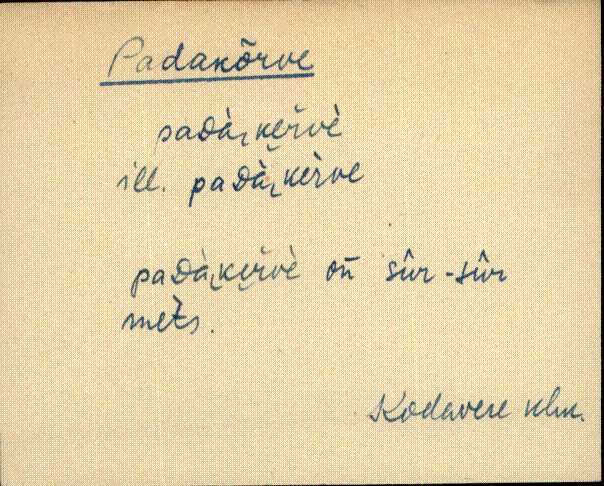 Padakõrve
paᴅà˛ke̮r̆vè
ill. paᴅà˛ke̮r̀ve
paᴅà˛ke̮r̆vè on̄ sûr-sûr
mets.
Kodavere khk.